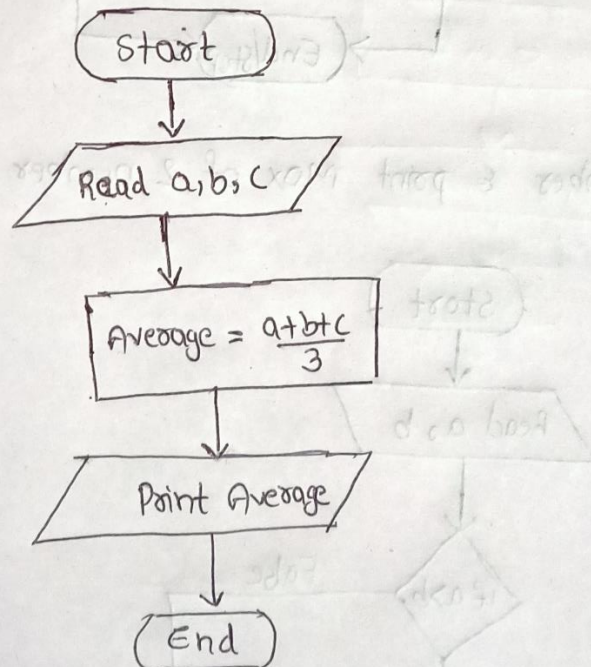 Start
Read a, b, c
Average = a+b+c
3
Print Average
End